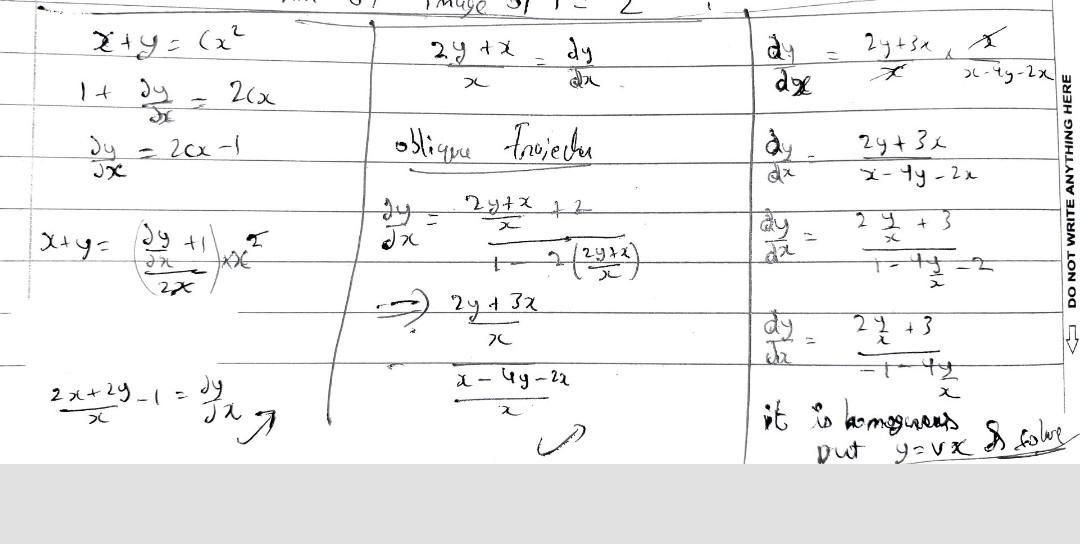 Image of
x+y = Cx²
1 + dy/dx = 2Cx
dy/dx = 2cx - 1
x+y = ((dy/dx + 1)/2x) × x²
(2x+2y)/x - 1 = dy/dx
(2y + x)/x = dy/dx
oblique
dy/dx = ((2y+x)/x + 2)/(1 - 2((2y+x)/x))
=> ((2y + 3x)/x)/((x - 4y - 2x)/x)
dy/dx = (2y+3x)/x × x/(x-4y-2x)
dy/dx = (2y + 3x)/(x - 4y - 2x)
dy/dx = (2 y/x + 3)/(1 - 4y/x - 2)
dy/dx = (2 y/x + 3)/(-1 - 4y/x)
it is
put y=vx & solve
DO NOT WRITE ANYTHING HERE